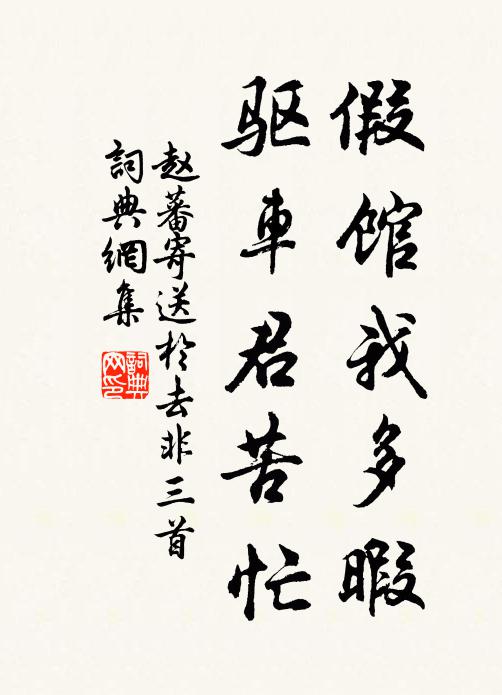 假馆我多暇
驱車君苦忙
赵蕃寄送於去非三首
詞典網集
詞典网印